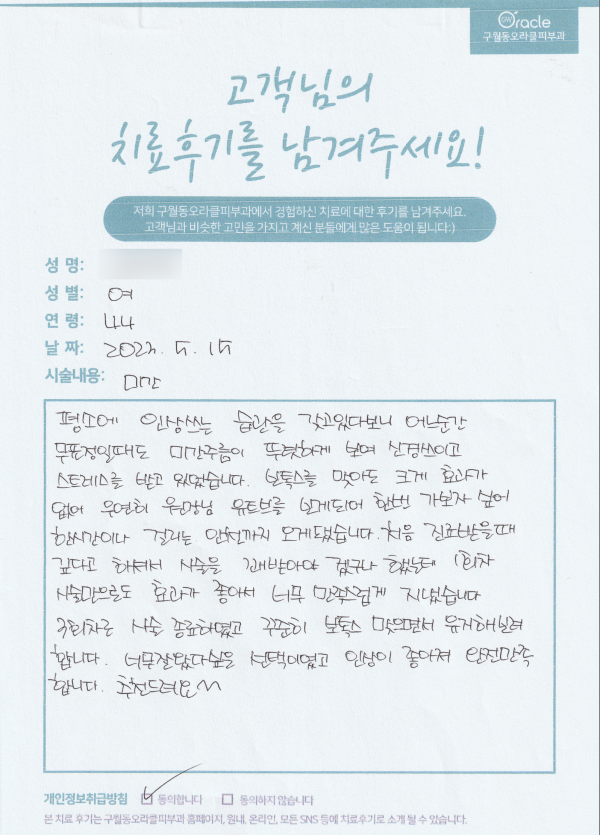 Oracle
구월동오라클피부과
고객님의
치료후기를 남겨주세요!
저희 구월동오라클피부과에서 경험하신 치료에 대한 후기를 남겨주세요.
고객님과 비슷한 고민을 가지고 계신 분들에게 많은 도움이 됩니다:)
성 명:
성 별: 여
연 령: 44
날 짜: 2025. 5. 15
시술내용: 미간
평소에 인상쓰는 습관을 갖고있다보니 어느순간
무표정일때도 미간주름이 뚜렷하게 보여 신경쓰이고
스트레스를 받고 있었습니다. 보톡스를 맞아도 크게 효과가
없어 우연히 원장님 유트브를 보게되어 한번 가보자 싶어
한시간이나 걸리는 인천까지 오게됐습니다. 처음 진료받을때
깊다고 하셔서 시술을 꽤받아야 겠구나 했는데 1회차
시술만으로도 효과가 좋아서 너무 만족스럽게 지냈습니다
2회차로 시술 종료하였고 꾸준히 보톡스 맞으면서 유지해보려
합니다. 너무잘왔다싶은 선택이였고 인상이 좋아져 완전만족
합니다. 추천드려요~
개인정보취급방침 동의합니다 동의하지 않습니다
본 치료 후기는 구월동오라클피부과 홈페이지, 원내, 온라인, 모든 SNS 등에 치료후기로 소개 될 수 있습니다.